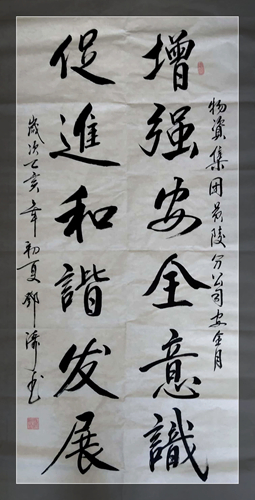 物资集团黄陵分公司安全月
增强安全意識
促進和諧发展
歲次丁亥年初夏鄧濤书